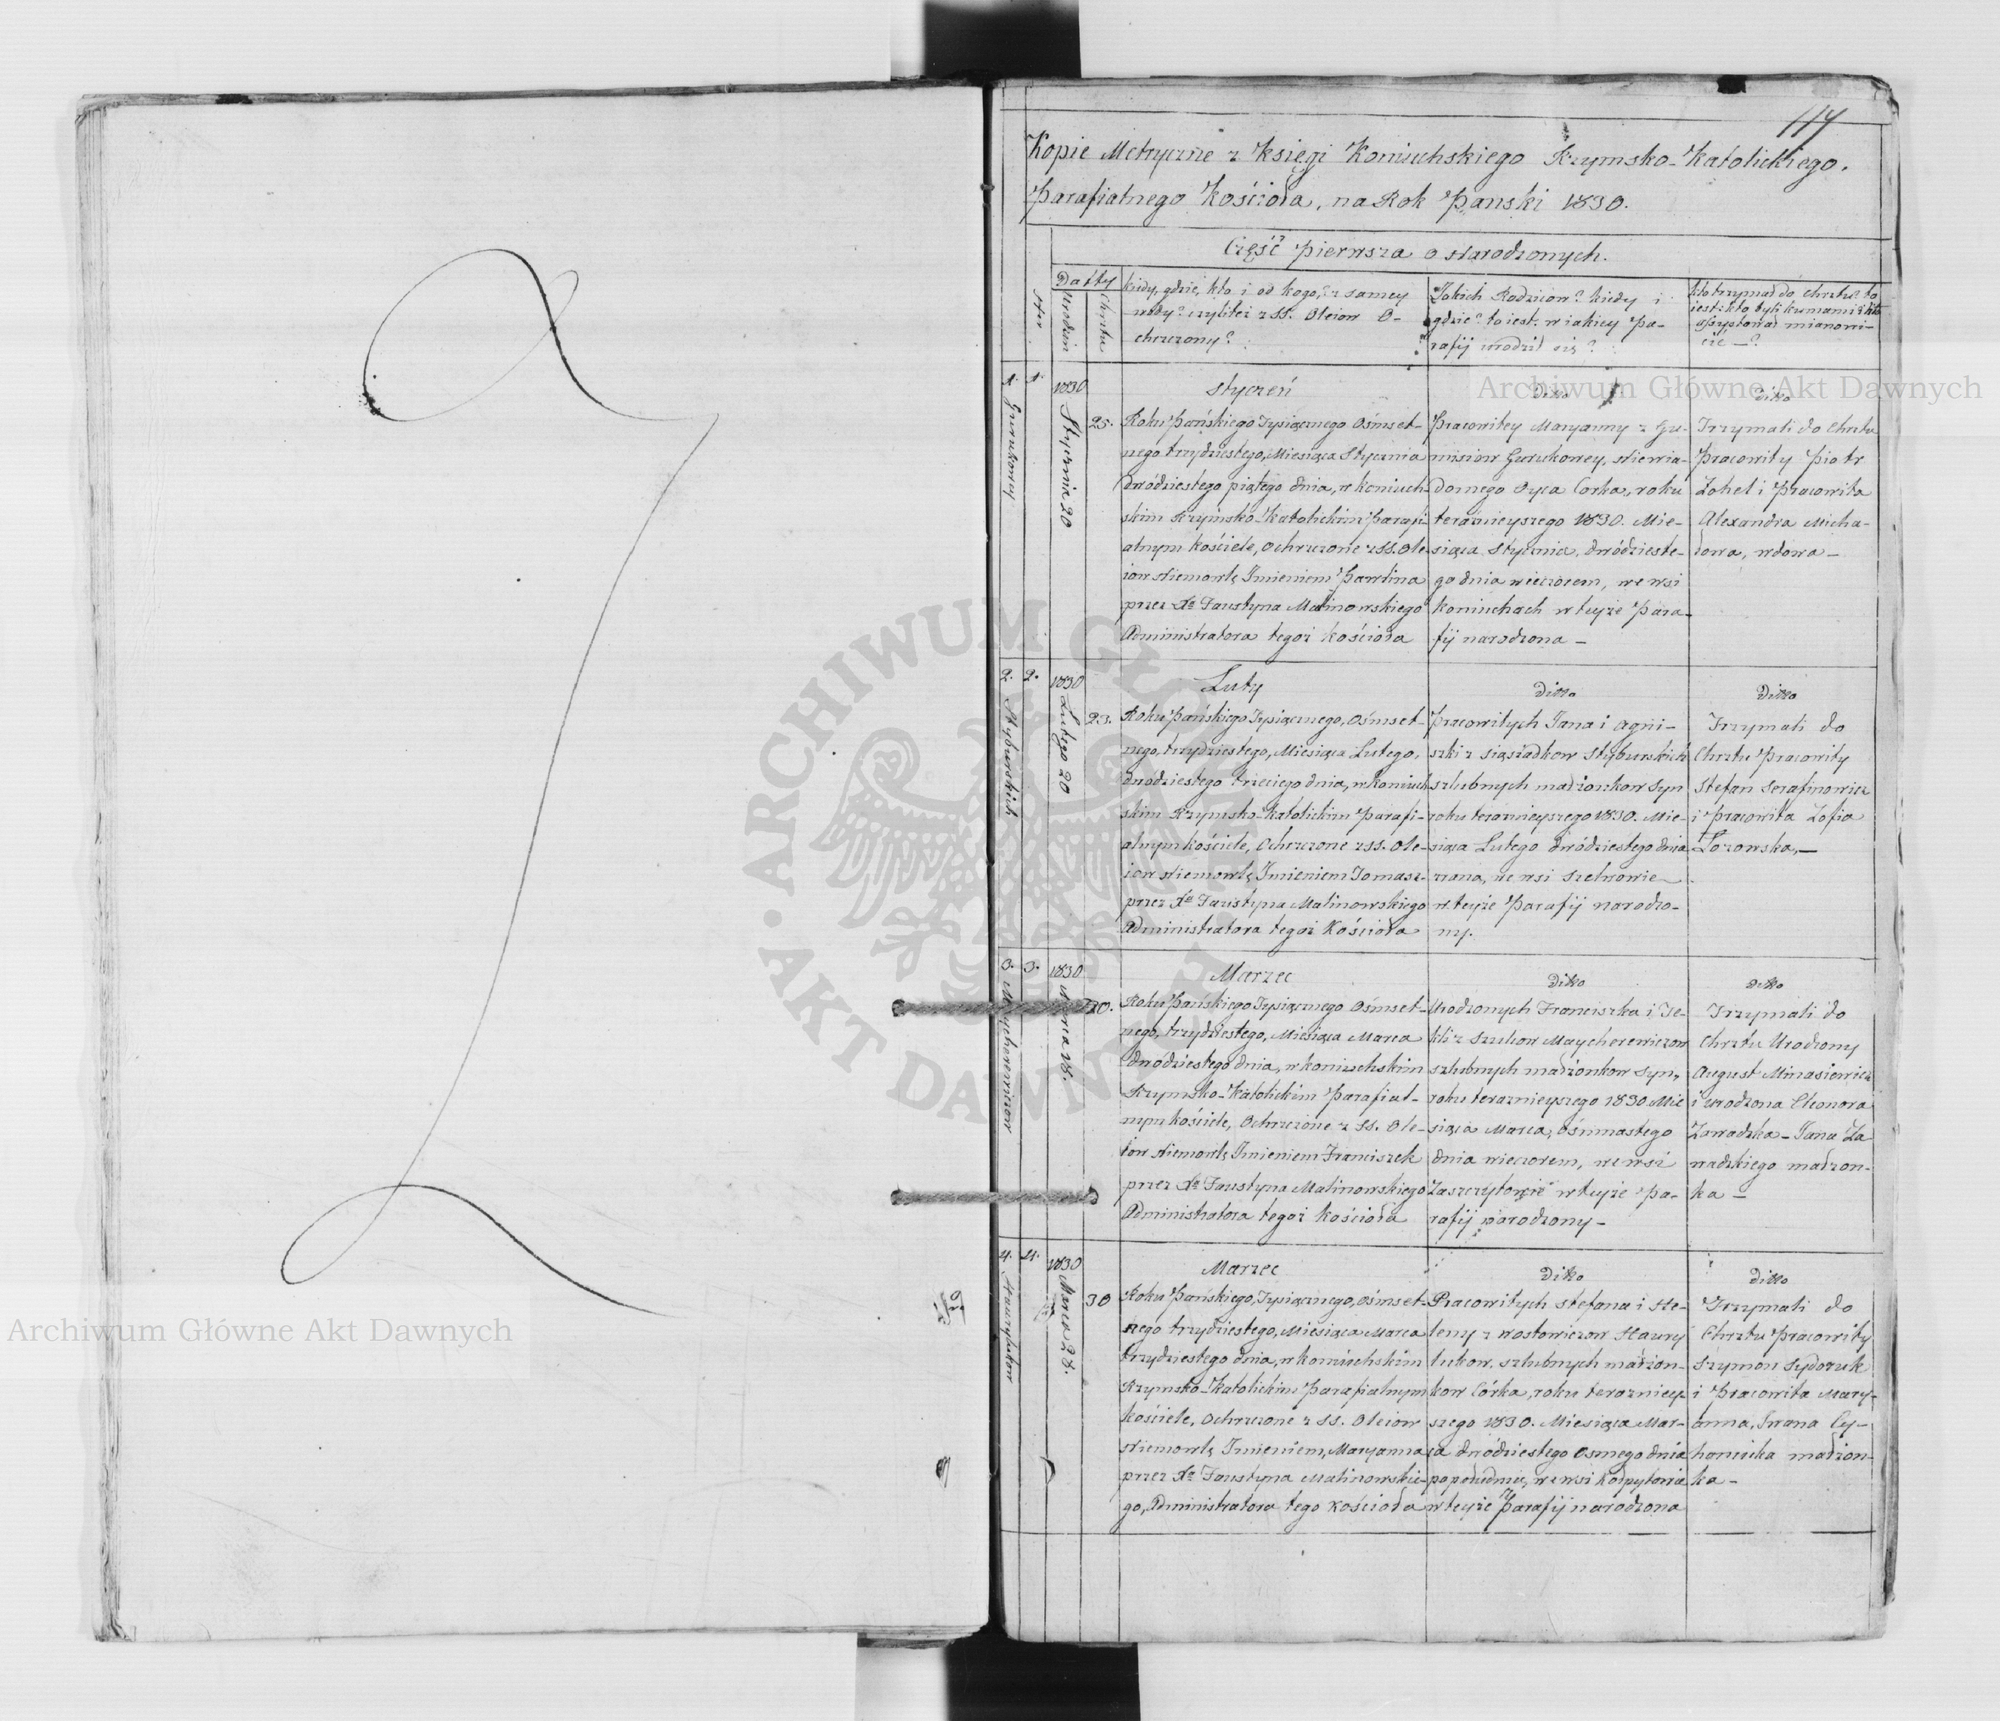 117
Kopie Metryczne z Księgi Koniuchskiego Rzymsko-Katolickiego.
Parafialnego Kościoła, na Rok Pański 1830.
Część Pierwsza o Narodzonych.
Datty
Nr
Urodzin
Chrztu
kiedy, gdzie, kto i od kogo, z samey
wody? czyliteż z SS. Oleiow O-
chrzczony?
Jakich Rodzicow? kiedy i
gdzie? to iest: w iakiey Pa-
rafij urodził się?
kto trzymał do chrztu? to
iest: kto byli kumami i kto
assystował mianowi-
cie —?
1. 1. 1830
Gurukowey
Stycznia 20
25.
Styczeń
Roku Pańskiego Tysiącznego Ośmset-
nego trzydziestego, Miesiąca Stycznia
dwódziestego piątego dnia, w koniuch-
skim Rzymsko-Katolickim Parafi-
alnym kościele, Ochrzczone z SS. Ole-
iow Niemowlę Imieniem Pawlina
przez Xa Faustyna Malinowskiego
Administratora tegoż kościoła
Ditto
Pracowitey Maryanny z Gu-
misiow Gurukowey, Niewia-
domego Oyca Corka, roku
teraźnieyszego 1830. Mie-
siąca Stycznia, dwódzieste-
go dnia wieczorem, we wsi
koniuchach w teyże Para-
fij narodzona —
Ditto
Trzymali do Chrztu
Pracowity Piotr
Zohel i Pracowita
Alexandra Micha-
łowa, wdowa —
2. 2. 1830
Styburskich
Lutego 20
23.
Luty
Roku Pańskiego Tysiącznego, Ośmset-
nego, trzydziestego, Miesiąca Lutego,
dwodziestego trzeciego dnia, w koniuch
skim Rzymsko-Katolickim Parafi-
alnym kościele, Ochrzczone z SS. Ole-
iow Niemowlę Imieniem Tomasz
przez Xa Faustyna Malinowskiego
Administratora tegoż Kościoła
Ditto
Pracowitych Jana i Agni-
szki z Sięsiadkow Styburskich
szlubnych małżonkow Syn
roku teraznieyszego 1830. Mie-
siąca Lutego dwódziestego dnia
zrana, we wsi Szelwowie
w teyże Parafij narodzo-
ny.
Ditto
Trzymali do
Chrztu Pracowity
Stefan Serafinowicz
i Pracowita Zofia
Łozowska, —
3. 3. 1830
Maycherowiczow
Marca 18.
20.
Marzec
Roku Pańskiego Tysiącznego Ośmset-
nego, trzydziestego, Miesiąca Marca
dwodziestego dnia, w koniuchskim
Rzymsko-Katolickim Parafial-
nym kościele, Ochrzczone z SS. Ole-
iow Niemowlę Imieniem Franciszek
przez Xa Faustyna Malinowskiego
Administratora tegoż kościoła
Ditto
Urodzonych Franciszka i Te-
kli z Szuhow Maycherewiczow
szlubnych małżonkow Syn,
roku teraznieyszego 1830 Mie
siąca Marca, Ośmnastego
dnia wieczorem, we wsi
Zaszczytowie w teyże Pa-
rafij narodzony —
Ditto
Trzymali do
Chrztu Urodzony
August Minasiewicz
i urodzona Eleonora
Zawadzka — Jana Za
wadzkiego małżon-
ka —
4. 4. 1830
Hawrylukow
Marca 28.
30
Marzec
Roku Pańskiego, Tysiącznego, Ośmset-
nego trzydziestego, Miesiąca Marca
trzydziestego dnia, w koniuchskim
Rzymsko-Katolickim Parafialnym
kościele, Ochrzczone z SS. Oleiow
Niemowlę Imieniem, Maryanna
przez Xa Faustyna Malinowskie-
go, Administratora tego kościoła
Ditto
Pracowitych Stefana i He-
leny z Wostowiczow Hawry
lukow, szlubnych małżon-
kow Córka, roku terazniey-
szego 1830. Miesiąca Mar-
ca dwódziestego osmego dnia
popołudniu, we wsi Kospytowie
w teyże Parafij narodzona
Ditto
Trzymali do
Chrztu Pracowity
Szymon Sydoruk
i Pracowita Mary-
anna, Iwana Cy-
małżon-
ka —
Archiwum Główne Akt Dawnych
Archiwum Główne Akt Dawnych
ARCHIWUM GŁÓWNE AKT DAWNYCH